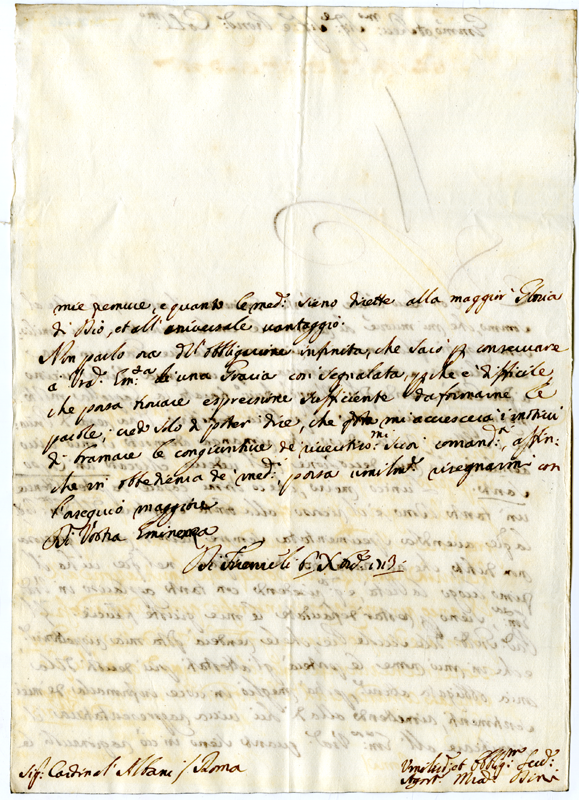 mie premure, e quanto le med: sieno dirette alla maggior Gloria
di Dio, et all'universale vantaggio.
Non parlo ora dell'obbligazione infinita, che sarò per conservare
a Vra Em:za di una Grazia così segnalata, perche è difficile,
che possa trovare espressione sufficiente da formarne le
parole; credo solo di poter dire, che mi accresceva i motivi
di bramare le congiunture de' riveritiss:mi suoi comandi, affin:
che in obbedienza de' med: possa umilm:te rassegnarmi con
l'ossequio maggiore
Di Vostra Eminenza
Di Firenze li X 1713
Sig: Cardinal: Albani / Roma
Umiliss: et Obblig:mo Serv: